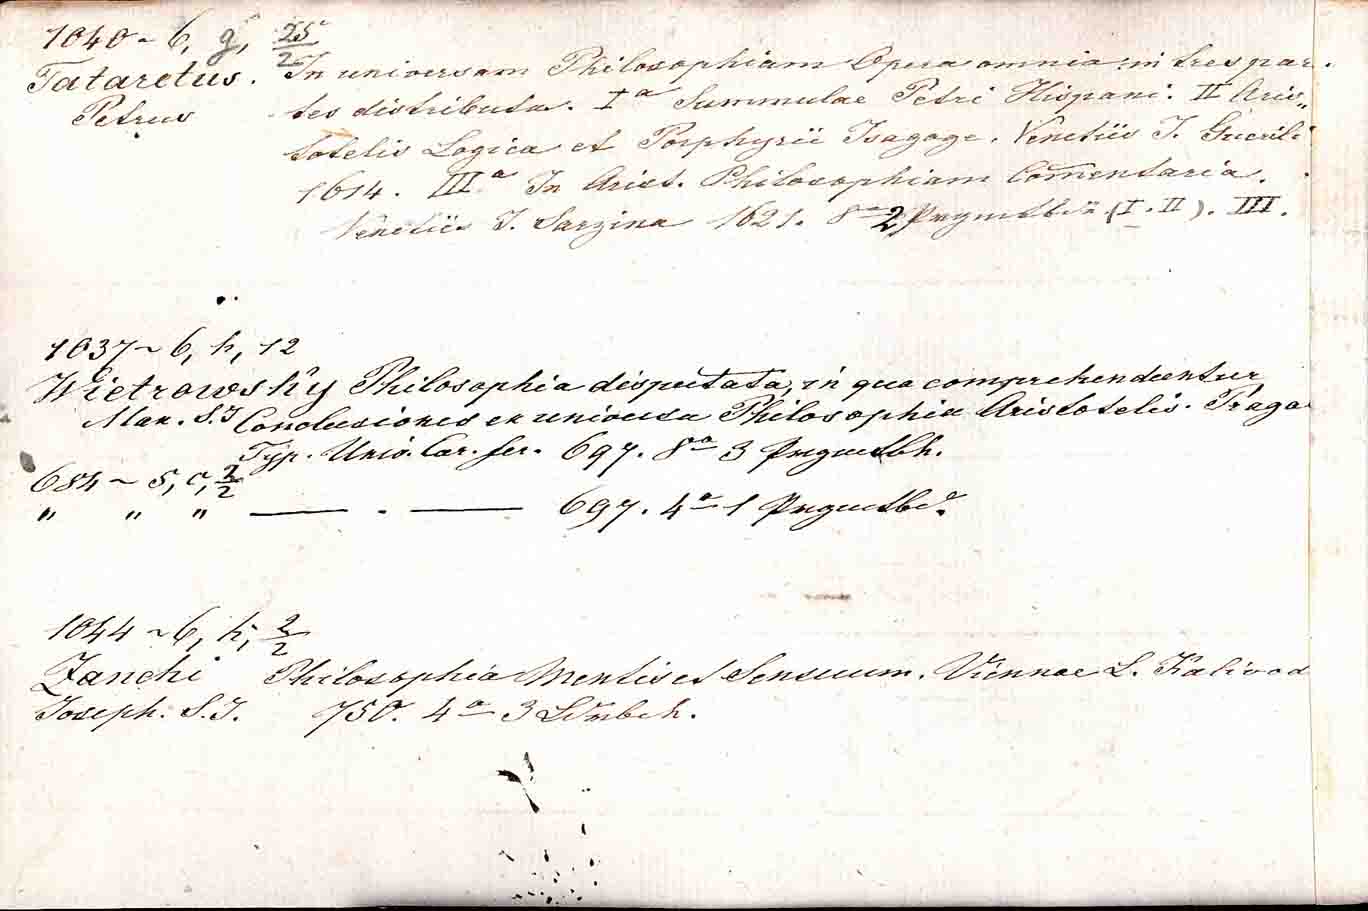 1040 ~ 6, g, 25/2
Tataretus. In universam Philosophiam Opera omnia in tres par-
Petrus tes distributa. I a Summulae Petri Hispani. II Aris„
totelis Logica et Porphyrii Isagoge. Venetiis J. Guerili
1614. III a In Arist. Philosophiam Com̅entaria.
Venetiis J. Sarzina 1621. 8 o 2 Prgmtb. (I. II). III.
1037 ~ 6, h, 12
Wietrowsky Philosophia disputata, in qua comprehenduntur
Max. S.J Conclusiones ex universa Philosophia Aristotelis. Praga
Typ. Univ. Car. fer. 697. 8 o 3 Prgmtbh.
684 ~ 5, c, 2/2
„ „ „ — . — 697. 4 o 1 Prgmtbd.
1044 ~ 6, h, 2/2
Zanchi Philosophia Mentis et Sensuum. Viennae L. Kaliwod
Joseph. S.J. 750. 4 o 3 Ldrbch.